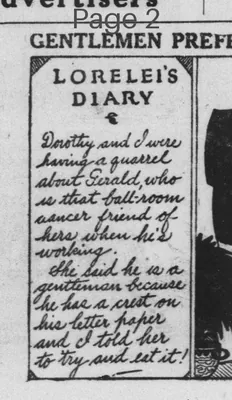 dvertisers
Page 2
GENTLEMEN PREFE
LORELEI'S
DIARY
Dorothy and I were
having a quarrel
about Gerald, who
is that ball-room
dancer friend of
hers when he's
working.
She said he is a
gentleman because
he has a crest on
his letter paper
and I told her
to try and eat it!